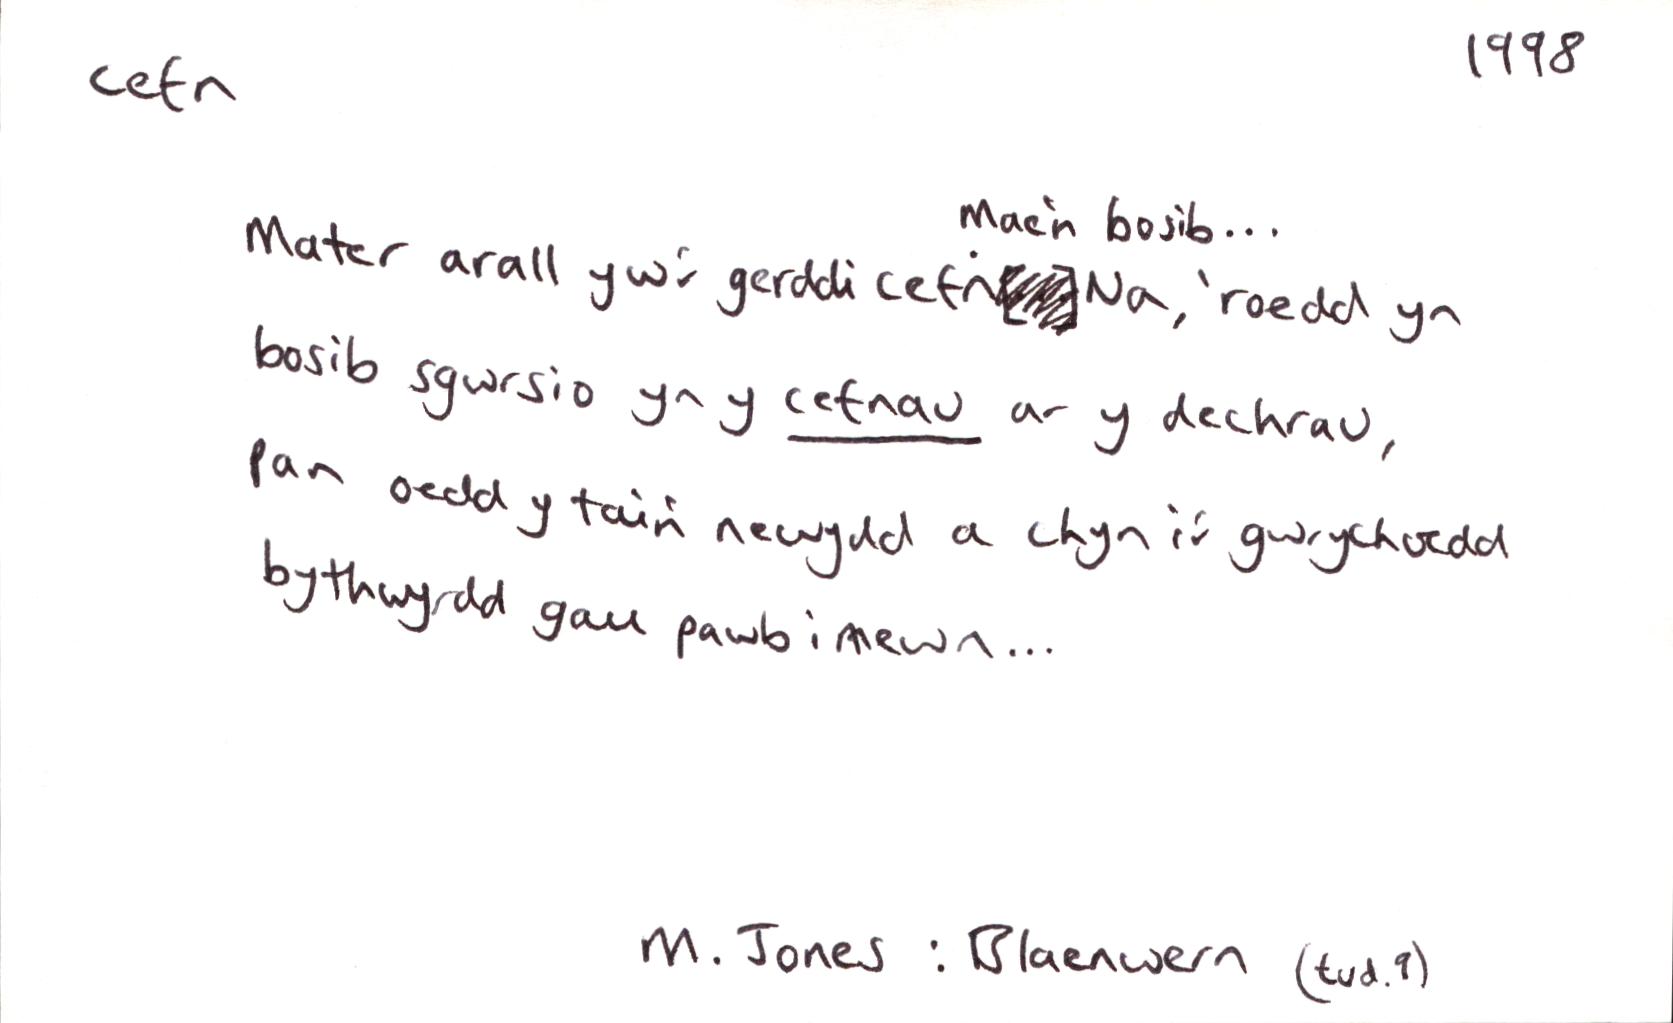 cefn
1998
Mae'n bosib...
Mater arall yw'r gerddi cefn. Na, 'roedd yn
bosib sgwrsio yn y cefnau ar y dechrau,
pan oedd y tai'n newydd a chyn i'r gwrychoedd
bythwyrdd gau pawb i mewn...
M. Jones : Blaenwern (tud. 9)